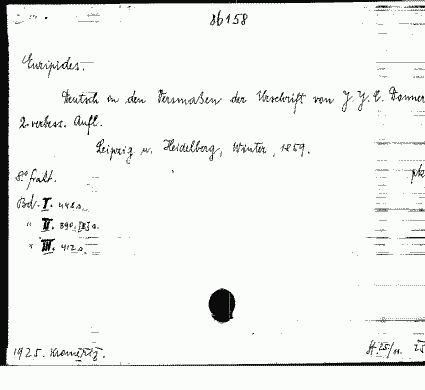 86158
Euripides.
Deutsch in den Versmaßen der Urschrift von J. J. C. Donner
2. verbess. Aufl.
Leipzig u. Heidelberg, Winter, 1859.
8.° frakt.
Bd. I. 448 s.
" II. 390, [II] s.
" III. 412 s.
1925. Kroměříž.